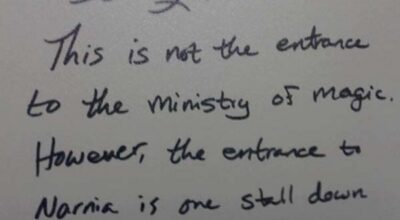 This is not the entrance
to the ministry of magic.
However, the entrance to
Narnia is one stall down